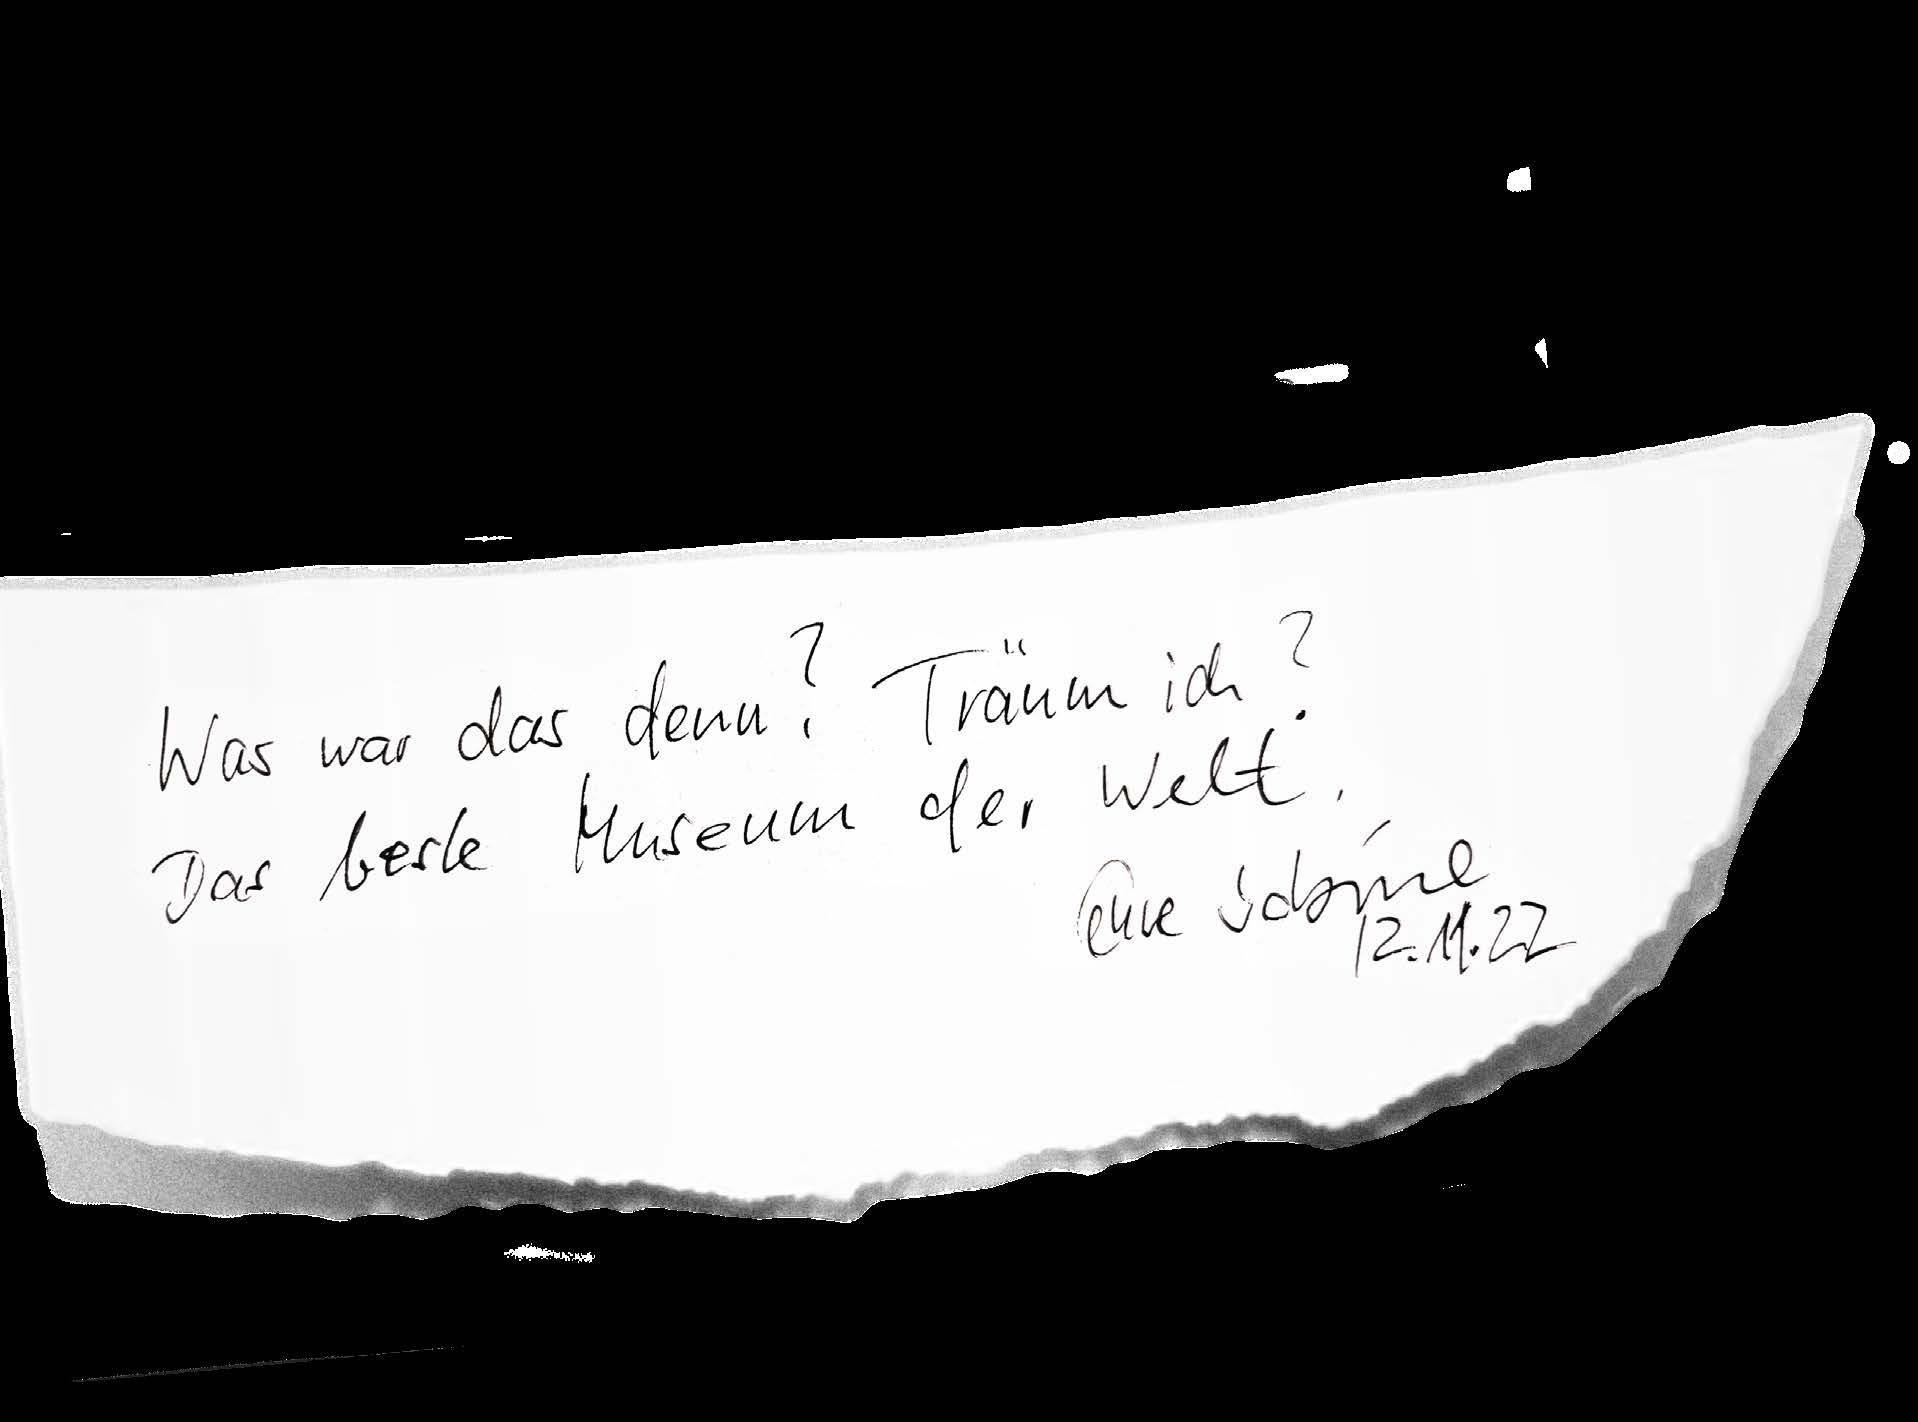 Was war das denn? Träum ich?
Das beste Museum der Welt.
eure
12.11.22